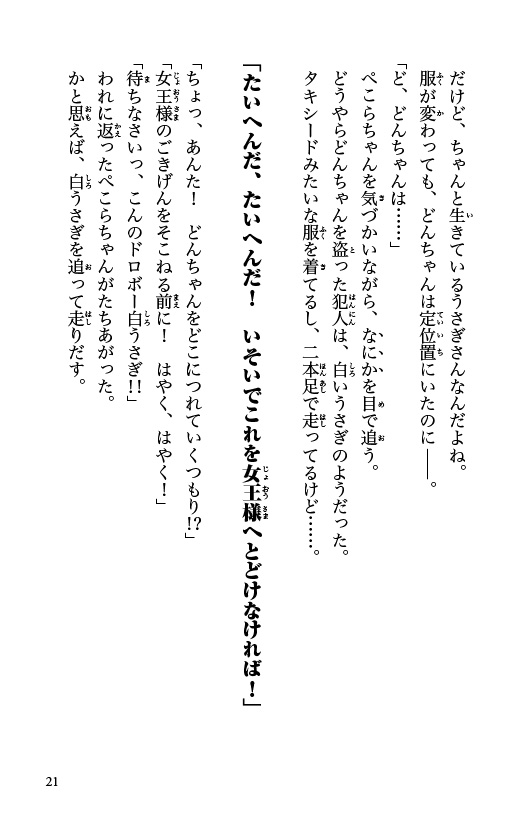 だけど、ちゃんと生きているうさぎさんなんだよね。
服が変わっても、どんちゃんは定位置にいたのに――。
「ど、どんちゃんは……」
ぺこらちゃんを気づかいながら、なにかを目で追う。
どうやらどんちゃんを盗った犯人は、白いうさぎのようだった。
タキシードみたいな服を着てるし、二本足で走ってるけど……。
「たいへんだ、たいへんだ！　いそいでこれを女王様へとどけなければ！」
「ちょっ、あんた！　どんちゃんをどこにつれていくつもり!?」
「女王様のごきげんをそこねる前に！　はやく、はやく！」
「待ちなさいっ、こんのドロボー白うさぎ!!」
われに返ったぺこらちゃんがたちあがった。
かと思えば、白うさぎを追って走りだす。
21